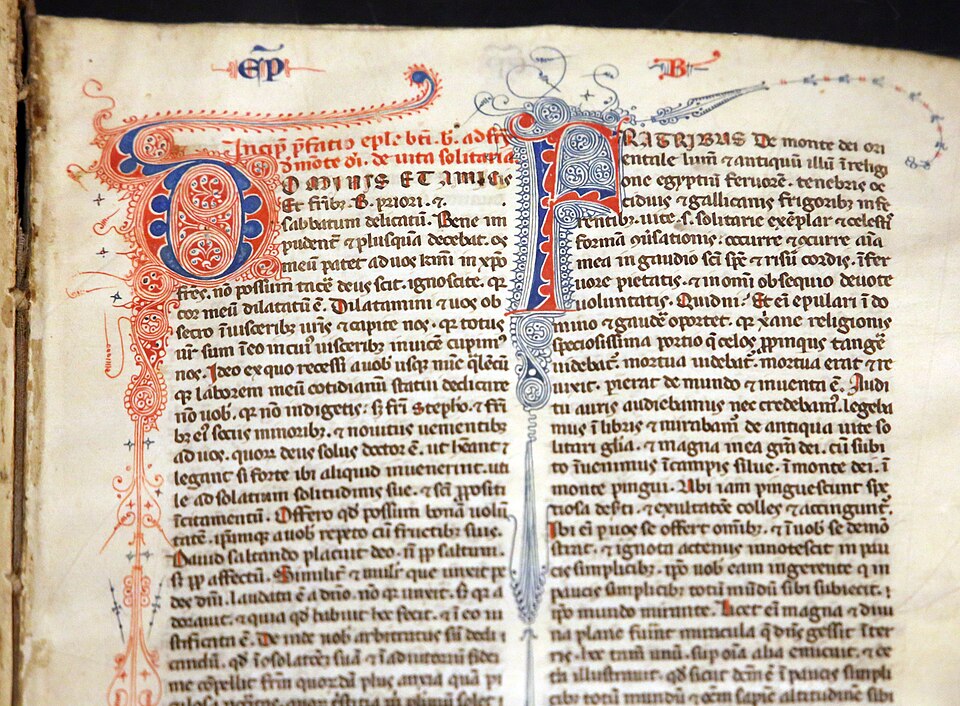 EP̄
B
Incip̄ p̄fatio epl̄e btī. b. ad frēs
d̄ monte dī. de vita solitaria
DOMINIS ET AMICIS
Et frīb; B. priori. ⁊.
sabbatum delicatū. Bene im
pudent̄ ⁊ plusquā decebat. os
meū patet ad uos kmī in xp̄o
frēs. nō possum tacē deus scit. ignoscite. qr
cor meū dilatatū ē. Dilatamini ⁊ uos ob
secro ī uisceribꝫ ur̄is ⁊ capite nos. qr totus
ur̄ sum ī eo in cuiꝰ uisceribꝫ inuicē cupimꝰ
nos. Ideo ex quo recessi a uob̄ usqꝫ nūc
qr laborem meū cotidianū statui dedicare
nō uob̄. qr nō indigetis. sꝫ frī Stepho. ⁊ frī
bꝫ eiꝰ sociis minoribꝫ. ⁊ nouitiis uenientibꝫ
ad uos. quorꝫ deus solus doctor ē. ut hēant ⁊
legant si forte ibi aliquid inuenerint. uti
le ad solatium solitudinis sue. ⁊ sc̄i ꝓpositi
īcitamentū. Offero qd̄ possum bonā uolū
tatē. ip̄mqꝫ a uob̄ repeto cū fructibꝫ suis.
Dauid saltando placuit deo. n̄ ꝓp̄ saltum.
sꝫ ꝓp̄ affectū. Similit̄ ⁊ muli̅ que unxit pe
des dn̄i. laudata ē a dn̄o. nō qr unxit. sꝫ qr a
dorauit. ⁊ quia qd̄ habuit hec fecit. ⁊ ī eo iu
stificata ē. De inde uob̄ arbitratus sū dedi
candū. qd̄ ī solatiū suū ⁊ ī adiutoriū fidei
me cōpellit frm̄ quordā plus anxia quā pi
FRATRIBUS De monte dei ori
entale lum̄ ⁊ antiquū illū ī religi
one egyptiū feruorē. tenebris oc
ciduis ⁊ gallicanis frigoribꝫ infe
rentibꝫ. uite. s. solitarie exēplar ⁊ celestis
formā cōuersationis. occurre ⁊ cōcurre aīa
mea in gaudio sc̄i sp̄s ⁊ risu cordis. ī fer
uore pietatis. ⁊ in om̄i obsequio deuote
uoluntatis. Quidni. Et em̄ epulari ī do
mino ⁊ gaudē oportet. qr xāne religionis
speciosissima portio q̄ celos ꝓpinquiꝰ tangē
uidebat̄. mortua uidebat̄. mortua erat ⁊ re
uixit. perierat de mundo ⁊ inuenta ē. Audi
tu auris audiebamus nec credebamꝰ. legeba
mus ī libris ⁊ mirabam̄ de antiqua uite so
litari gl̄ia. ⁊ magna mea gr̄m dei. cū subi
to īuenimus ī campis silue. ī monte dei. ī
monte pingui. Ubi iam pinguescunt spe
ciosa deserti. ⁊ exultatiōe colles ⁊ accingunt̄.
Ibi em̄ ꝑ uos se offert om̄ibꝫ. ⁊ ī uob̄ se demō
strat. ⁊ ignota actenus innotescit in pau
cis simplicibꝫ. ip̄o uob̄ eam ingerente qi in
paucis simplicibꝫ totū mūdū sibi subiecit.
ip̄o mundo mirante. Licet em̄ magna ⁊ diui
na plane fuīnt miracula q̄ dn̄s gessit ī ter
ris. hec tam̄ unū. supōia alia emicuit. ⁊ ce
tā illustrauit. qd̄ sicut dcm̄ ē ī paucis simpli
cibꝫ totū mundū ⁊ om̄em sapīe altitudinē sibi